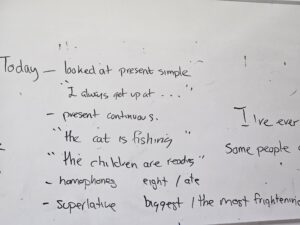 Today – looked at present simple
"I always get up at ..."
– present continuous.
"the cat is fishing"
"the children are reading"
– homophones eight / ate
– superlative biggest / the most frightening
I I've ever
Some people